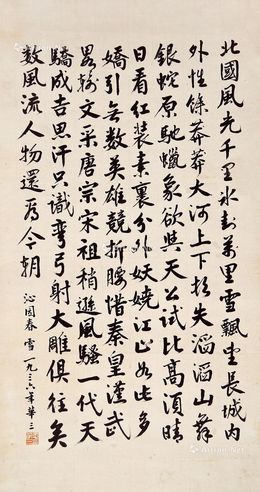 北國風光千里冰封萬里雪飄望長城内
外惟餘莽莽大河上下頓失滔滔山舞
銀蛇原馳蠟象欲與天公試比高須晴
日看紅裝素裹分外妖嬈江山如此多
嬌引無數英雄競折腰惜秦皇漢武
畧輸文采唐宗宋祖稍遜風騷一代天
驕成吉思汗只識彎弓射大雕俱往矣
數風流人物還看今朝
沁園春 雪 一九三六年 華三